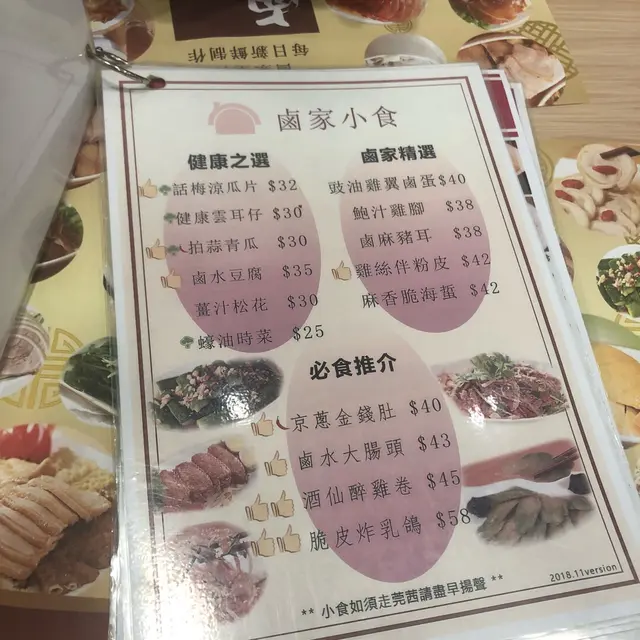 每日新鮮制作
鹵家小食
健康之選
話梅涼瓜片 $32
健康雲耳仔 $30
拍蒜青瓜 $30
鹵水豆腐 $35
薑汁松花 $30
蠔油時菜 $25
鹵家精選
豉油雞翼鹵蛋$40
鮑汁雞腳 $38
鹵麻豬耳 $38
雞絲伴粉皮 $42
麻香脆海蜇 $42
必食推介
京蔥金錢肚 $40
鹵水大腸頭 $43
酒仙醉雞卷 $45
脆皮炸乳鴿 $58
** 小食如須走芫茜請盡早揚聲 **
2018.11version